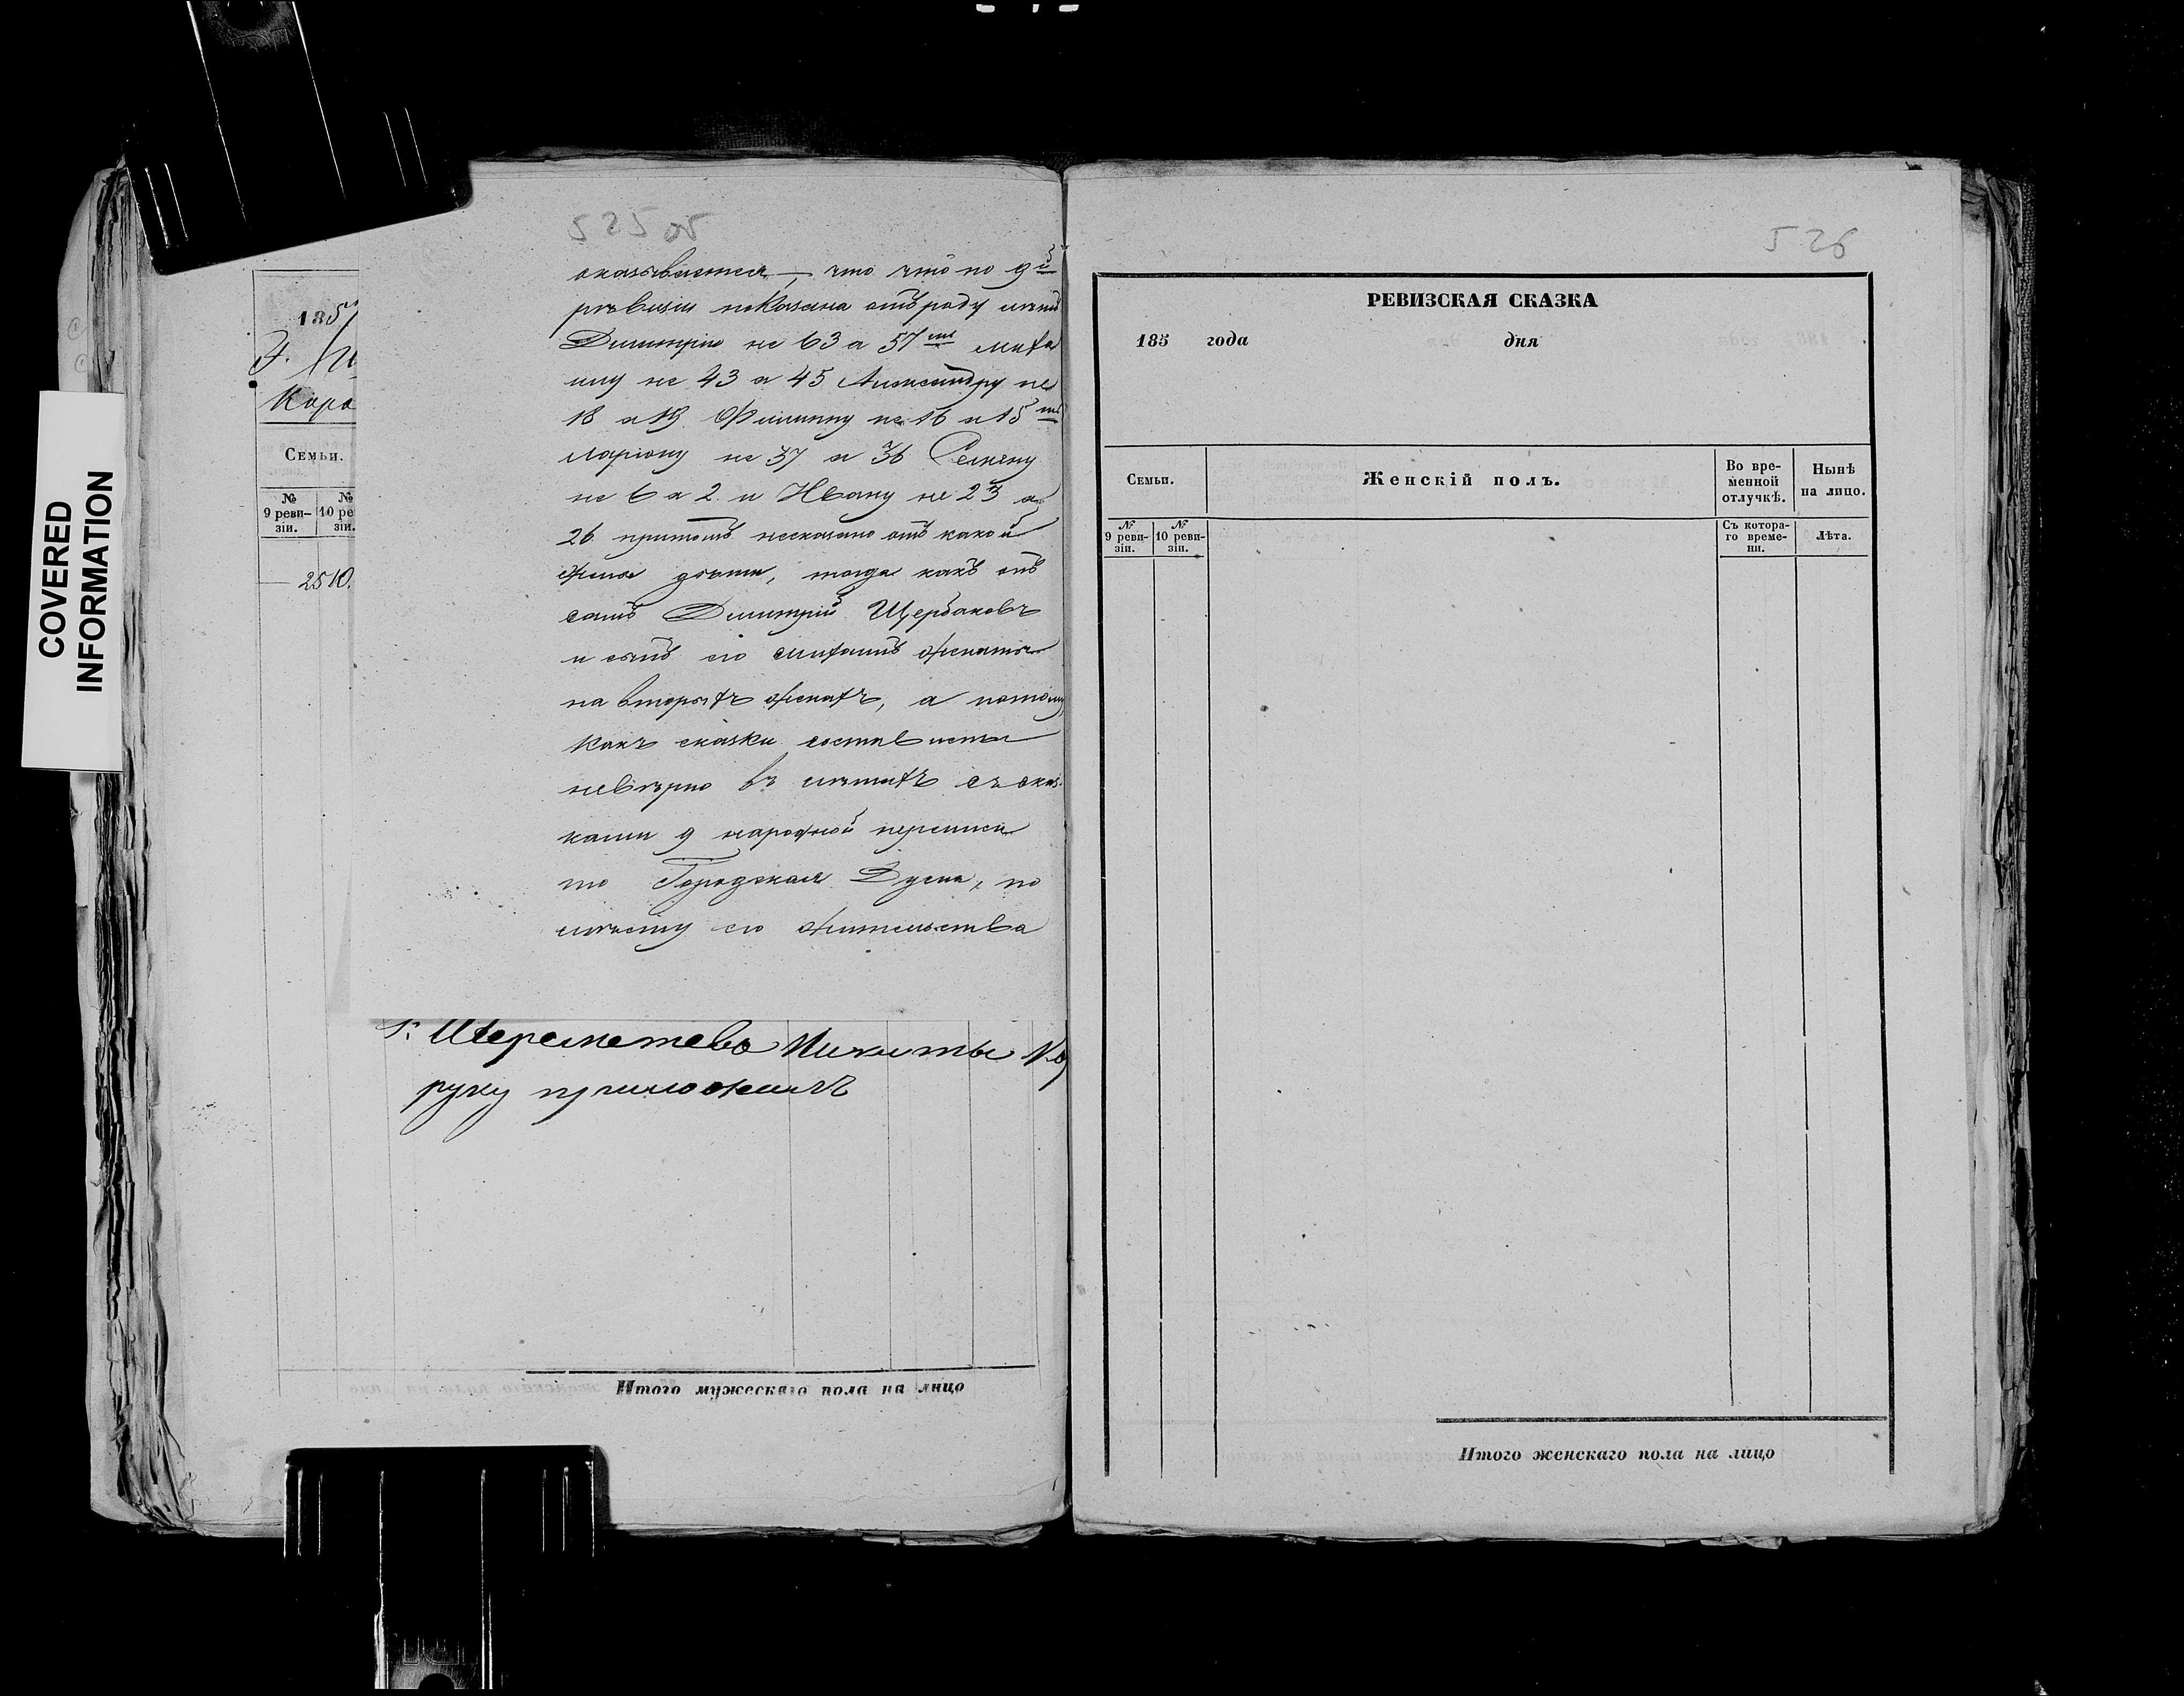 COVERED
INFORMATION
525 об
1857
Каро
Семьи.
№ №
9 реви- 10 ре
зіи. зіи.
2510.
оказывается, что что по 9й
ревизіи показана отъ роду лѣтъ
Дмитрію не 63 а 57ми миха
илу не 43 а 45 Александру не
18 а 19 Филиппу не 16 а 15ти
Ларіону не 37 а 36 Семену
не 6 а 2 и Ивану не 23 а
26 притомъ несказано отъ какой
жены дѣти, тогда какъ онъ
самъ Димитрій Щербаковъ
и сынъ его михаилъ женаты
на вторыхъ женахъ, а потому
какъ сказки составлены
невѣрно въ лѣтахъ съ сказ-
ками 9 народной переписи
то Городская Дума, по
мѣсту его жительства
Шереметева Никиты
руку приложилъ
Итого мужескаго пола на лицо
526
РЕВИЗСКАЯ СКАЗКА
185 года дня
Семьи.
Женскій полъ.
Во вре-
менной
отлучкѣ.
Нынѣ
на лицо.
№ №
9 реви- 10 реви-
зіи. зіи.
Съ котора-
го време-
ни.
Лѣта.
Итого женскаго пола на лицо